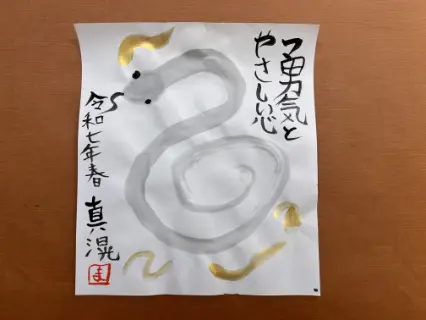 勇気と
やさしい心
令和七年春
真滉
ま